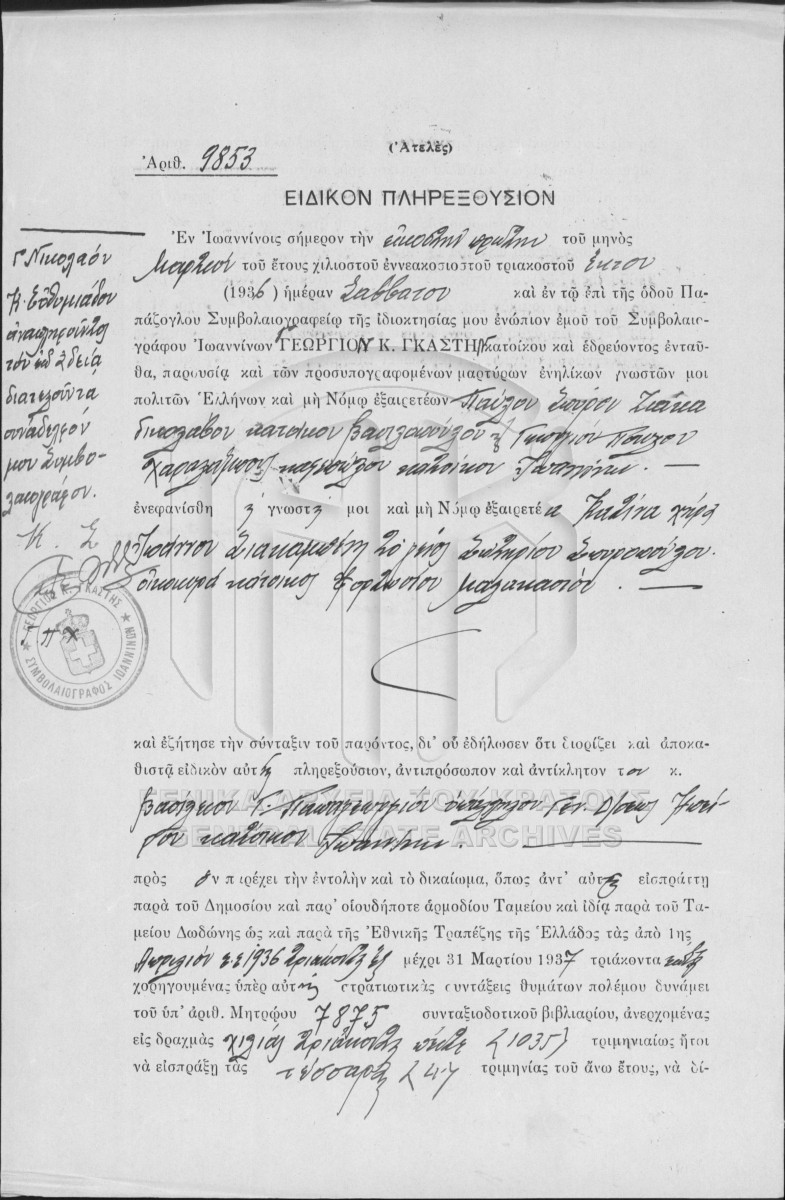 (Ἀτελὲς)
Ἀριθ. 9853
ΕΙΔΙΚΟΝ ΠΛΗΡΕΞΟΥΣΙΟΝ
Ἐν Ἰωαννίνοις σήμερον τὴν εἰκοστὴν πρώτην τοῦ μηνὸς
Μαρτίου τοῦ ἔτους χιλιοστοῦ ἐννεακοσιοστοῦ τριακοστοῦ ἕκτου
(1936) ἡμέραν Σάββατον καὶ ἐν τῷ ἐπὶ τῆς ὁδοῦ Πα-
πάζογλου Συμβολαιογραφείῳ τῆς ἰδιοκτησίας μου ἐνώπιον ἐμοῦ τοῦ Συμβολαιο-
γράφου Ἰωαννίνων ΓΕΩΡΓΙΟΥ Κ. ΓΚΑΣΤΗ κατοίκου καὶ ἑδρεύοντος ἐνταῦ-
θα, παρουσίᾳ καὶ τῶν προσυπογραφομένων μαρτύρων ἐνηλίκων γνωστῶν μοι
πολιτῶν Ἑλλήνων καὶ μὴ Νόμῳ ἐξαιρετέων Παύλου Σπύρου
κατοίκου Βασιλοπούλου Γεωργίου
Χαραλάμπους κατοίκου Ἰωαννίνων. —
ἐνεφανίσθη ἡ γνωστή μοι καὶ μὴ Νόμῳ ἐξαιρετέα Κατίνα χήρα
Ἰωάννου τὸ γένος Σωτηρίου
κάτοικος Μαλακασίου. —
Γ Νικολάου
Κ. Εὐθυμιάδου
ἀναπληροῦντος
τὸν ἐν ἀδείᾳ
διατελοῦντα
συνάδελφόν
μου Συμβο-
λαιογράφον.
Κ. Σ
ΓΕΩΡΓΙΟΣ Κ. ΓΚΑΣΤΗΣ
ΣΥΜΒΟΛΑΙΟΓΡΑΦΟΣ ΙΩΑΝΝΙΝΩΝ
καὶ ἐζήτησε τὴν σύνταξιν τοῦ παρόντος, δι' οὗ ἐδήλωσεν ὅτι διορίζει καὶ ἀποκα-
θιστᾷ εἰδικὸν αὐτῆς πληρεξούσιον, ἀντιπρόσωπον καὶ ἀντίκλητον τὸν κ.
Βασίλειον Γ. Παπαγεωργίου ὑπάλληλον Γεν. Δ)σεως Ἠπεί-
ρου κάτοικον Ἰωαννίνων. —
ΓΕΝΙΚΑ ΑΡΧΕΙΑ ΤΟΥ ΚΡΑΤΟΥΣ
GENERAL STATE ARCHIVES
πρὸς ὃν παρέχει τὴν ἐντολὴν καὶ τὸ δικαίωμα, ὅπως ἀντ' αὐτῆς εἰσπράττῃ
παρὰ τοῦ Δημοσίου καὶ παρ' οἱουδήποτε ἁρμοδίου Ταμείου καὶ ἰδίᾳ παρὰ τοῦ Τα-
μείου Δωδώνης ὡς καὶ παρὰ τῆς Ἐθνικῆς Τραπέζης τῆς Ἑλλάδος τὰς ἀπὸ 1ης
Ἀπριλίου 1936 τριάκοντα ἓξ μέχρι 31 Μαρτίου 1937 τριάκοντα ἑπτὰ
χορηγουμένας ὑπὲρ αὐτῆς στρατιωτικὰς συντάξεις θυμάτων πολέμου δυνάμει
τοῦ ὑπ' ἀριθ. Μητρῴου 7875 συνταξιοδοτικοῦ βιβλιαρίου, ἀνερχομένας
εἰς δραχμὰς χιλίας τριάκοντα πέντε (1035) τριμηνιαίως ἤτοι
νὰ εἰσπράξῃ τὰς τέσσαρας (4) τριμηνίας τοῦ ἄνω ἔτους, νὰ δί-